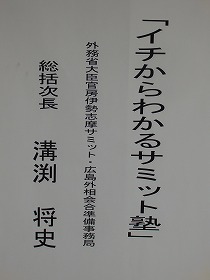 「イチからわかるサミット塾」
外務省大臣官房伊勢志摩サミット・広島外相会合準備事務局
総括次長　溝渕　将史